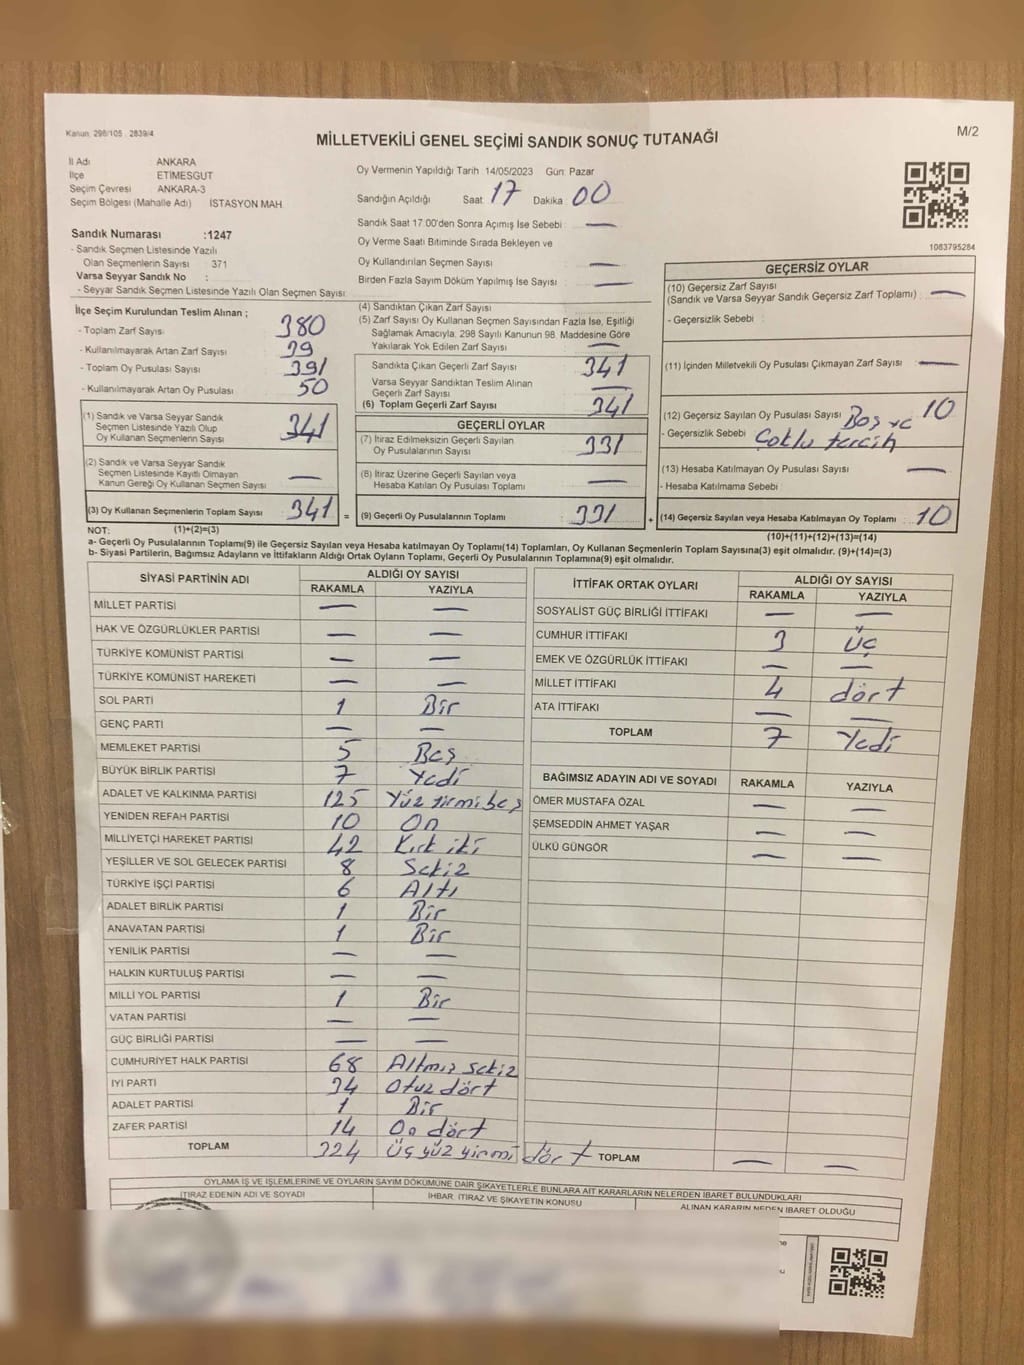 Kanun: 298/105 , 2839/4
MİLLETVEKİLİ GENEL SEÇİMİ SANDIK SONUÇ TUTANAĞI
M/2
İl Adı ANKARA
İlçe ETİMESGUT
Seçim Çevresi ANKARA-3
Seçim Bölgesi (Mahalle Adı) İSTASYON MAH
Oy Vermenin Yapıldığı Tarih 14/05/2023 Gün: Pazar
Sandığın Açıldığı Saat 17 Dakika 00
Sandık Saat 17:00'den Sonra Açımış İse Sebebi : —
Oy Verme Saati Bitiminde Sırada Bekleyen ve
Oy Kullandırılan Seçmen Sayısı : —
Birden Fazla Sayım Döküm Yapılmış İse Sayısı : —
1083795284
Sandık Numarası :1247
- Sandık Seçmen Listesinde Yazılı
Olan Seçmenlerin Sayısı : 371
Varsa Seyyar Sandık No :
- Seyyar Sandık Seçmen Listesinde Yazılı Olan Seçmen Sayısı:
İlçe Seçim Kurulundan Teslim Alınan ;
- Toplam Zarf Sayısı 380
- Kullanılmayarak Artan Zarf Sayısı 39
- Toplam Oy Pusulası Sayısı 391
- Kullanılmayarak Artan Oy Pusulası : 50
(1) Sandık ve Varsa Seyyar Sandık
Seçmen Listesinde Yazılı Olup
Oy Kullanan Seçmenlerin Sayısı 341
(2) Sandık ve Varsa Seyyar Sandık
Seçmen Listesinde Kayıtlı Olmayan
Kanun Gereği Oy Kullanan Seçmen Sayısı —
(3) Oy Kullanan Seçmenlerin Toplam Sayısı 341 =
(4) Sandıktan Çıkan Zarf Sayısı
(5) Zarf Sayısı Oy Kullanan Seçmen Sayısından Fazla İse, Eşitliği
Sağlamak Amacıyla, 298 Sayılı Kanunun 98. Maddesine Göre
Yakılarak Yok Edilen Zarf Sayısı —
Sandıkta Çıkan Geçerli Zarf Sayısı 341
Varsa Seyyar Sandıktan Teslim Alınan
Geçerli Zarf Sayısı —
(6) Toplam Geçerli Zarf Sayısı 341
GEÇERLİ OYLAR
(7) İtiraz Edilmeksizin Geçerli Sayılan
Oy Pusulalarının Sayısı 331
(8) İtiraz Üzerine Geçerli Sayılan veya
Hesaba Katılan Oy Pusulası Toplamı —
(9) Geçerli Oy Pusulalarının Toplamı 331 +
GEÇERSİZ OYLAR
(10) Geçersiz Zarf Sayısı
(Sandık ve Varsa Seyyar Sandık Geçersiz Zarf Toplamı) : —
- Geçersizlik Sebebi :
(11) İçinden Milletvekili Oy Pusulası Çıkmayan Zarf Sayısı : —
(12) Geçersiz Sayılan Oy Pusulası Sayısı : 10
- Geçersizlik Sebebi : Boş ve
çoklu tercih
(13) Hesaba Katılmayan Oy Pusulası Sayısı : —
- Hesaba Katılmama Sebebi :
(14) Geçersiz Sayılan veya Hesaba Katılmayan Oy Toplamı : 10
NOT: (1)+(2)=(3)
(10)+(11)+(12)+(13)=(14)
a- Geçerli Oy Pusulalarının Toplamı(9) ile Geçersiz Sayılan veya Hesaba katılmayan Oy Toplamı(14) Toplamları, Oy Kullanan Seçmenlerin Toplam Sayısına(3) eşit olmalıdır. (9)+(14)=(3)
b- Siyasi Partilerin, Bağımsız Adayların ve İttifakların Aldığı Ortak Oyların Toplamı, Geçerli Oy Pusulalarının Toplamına(9) eşit olmalıdır.
SİYASİ PARTİNİN ADI ALDIĞI OY SAYISI
RAKAMLA YAZIYLA
MİLLET PARTİSİ — —
HAK VE ÖZGÜRLÜKLER PARTİSİ — —
TÜRKİYE KOMÜNİST PARTİSİ — —
TÜRKİYE KOMÜNİST HAREKETİ — —
SOL PARTİ 1 Bir
GENÇ PARTİ — —
MEMLEKET PARTİSİ 5 Beş
BÜYÜK BİRLİK PARTİSİ 7 Yedi
ADALET VE KALKINMA PARTİSİ 125 Yüz yirmi beş
YENİDEN REFAH PARTİSİ 10 On
MİLLİYETÇİ HAREKET PARTİSİ 42 Kırk iki
YEŞİLLER VE SOL GELECEK PARTİSİ 8 Sekiz
TÜRKİYE İŞÇİ PARTİSİ 6 Altı
ADALET BİRLİK PARTİSİ 1 Bir
ANAVATAN PARTİSİ 1 Bir
YENİLİK PARTİSİ — —
HALKIN KURTULUŞ PARTİSİ — —
MİLLİ YOL PARTİSİ 1 Bir
VATAN PARTİSİ — —
GÜÇ BİRLİĞİ PARTİSİ — —
CUMHURİYET HALK PARTİSİ 68 Altmış sekiz
İYİ PARTİ 34 Otuz dört
ADALET PARTİSİ 1 Bir
ZAFER PARTİSİ 14 On dört
TOPLAM 324 Üç yüz yirmi dört
İTTİFAK ORTAK OYLARI ALDIĞI OY SAYISI
RAKAMLA YAZIYLA
SOSYALİST GÜÇ BİRLİĞİ İTTİFAKI — —
CUMHUR İTTİFAKI 3 Üç
EMEK VE ÖZGÜRLÜK İTTİFAKI — —
MİLLET İTTİFAKI 4 dört
ATA İTTİFAKI — —
TOPLAM 7 Yedi
BAĞIMSIZ ADAYIN ADI VE SOYADI RAKAMLA YAZIYLA
ÖMER MUSTAFA ÖZAL — —
ŞEMSEDDİN AHMET YAŞAR — —
ÜLKÜ GÜNGÖR — —
TOPLAM — —
OYLAMA İŞ VE İŞLEMLERİNE VE OYLARIN SAYIM DÖKÜMÜNE DAİR ŞİKAYETLERLE BUNLARA AİT KARARLARIN NELERDEN İBARET BULUNDUKLARI
İTİRAZ EDENİN ADI VE SOYADI İHBAR, İTİRAZ VE ŞİKAYETİN KONUSU ALINAN KARARIN NEDEN İBARET OLDUĞU